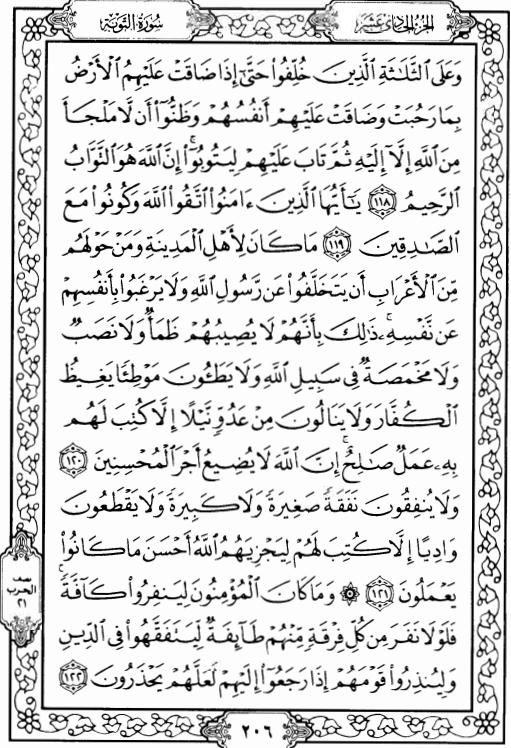 سورة التوبة
الجزء الحادي عشر
وَعَلَى ٱلثَّلَٰثَةِ ٱلَّذِينَ خُلِّفُوا۟ حَتَّىٰٓ إِذَا ضَاقَتْ عَلَيْهِمُ ٱلْأَرْضُ
بِمَا رَحُبَتْ وَضَاقَتْ عَلَيْهِمْ أَنفُسُهُمْ وَظَنُّوٓا۟ أَن لَّا مَلْجَأَ
مِنَ ٱللَّهِ إِلَّآ إِلَيْهِ ثُمَّ تَابَ عَلَيْهِمْ لِيَتُوبُوٓا۟ ۚ إِنَّ ٱللَّهَ هُوَ ٱلتَّوَّابُ
ٱلرَّحِيمُ ١١٨ يَٰٓأَيُّهَا ٱلَّذِينَ ءَامَنُوا۟ ٱتَّقُوا۟ ٱللَّهَ وَكُونُوا۟ مَعَ
ٱلصَّٰدِقِينَ ١١٩ مَا كَانَ لِأَهْلِ ٱلْمَدِينَةِ وَمَنْ حَوْلَهُم
مِّنَ ٱلْأَعْرَابِ أَن يَتَخَلَّفُوا۟ عَن رَّسُولِ ٱللَّهِ وَلَا يَرْغَبُوا۟ بِأَنفُسِهِمْ
عَن نَّفْسِهِۦ ۚ ذَٰلِكَ بِأَنَّهُمْ لَا يُصِيبُهُمْ ظَمَأٌ وَلَا نَصَبٌ
وَلَا مَخْمَصَةٌ فِى سَبِيلِ ٱللَّهِ وَلَا يَطَـُٔونَ مَوْطِئًا يَغِيظُ
ٱلْكُفَّارَ وَلَا يَنَالُونَ مِنْ عَدُوٍّ نَّيْلًا إِلَّا كُتِبَ لَهُم
بِهِۦ عَمَلٌ صَٰلِحٌ ۚ إِنَّ ٱللَّهَ لَا يُضِيعُ أَجْرَ ٱلْمُحْسِنِينَ ١٢٠
وَلَا يُنفِقُونَ نَفَقَةً صَغِيرَةً وَلَا كَبِيرَةً وَلَا يَقْطَعُونَ
وَادِيًا إِلَّا كُتِبَ لَهُمْ لِيَجْزِيَهُمُ ٱللَّهُ أَحْسَنَ مَا كَانُوا۟
يَعْمَلُونَ ١٢١ ۞ وَمَا كَانَ ٱلْمُؤْمِنُونَ لِيَنفِرُوا۟ كَآفَّةً ۚ
فَلَوْلَا نَفَرَ مِن كُلِّ فِرْقَةٍ مِّنْهُمْ طَآئِفَةٌ لِّيَتَفَقَّهُوا۟ فِى ٱلدِّينِ
وَلِيُنذِرُوا۟ قَوْمَهُمْ إِذَا رَجَعُوٓا۟ إِلَيْهِمْ لَعَلَّهُمْ يَحْذَرُونَ ١٢٢
نصف
الحزب
٢١
٢٠٦